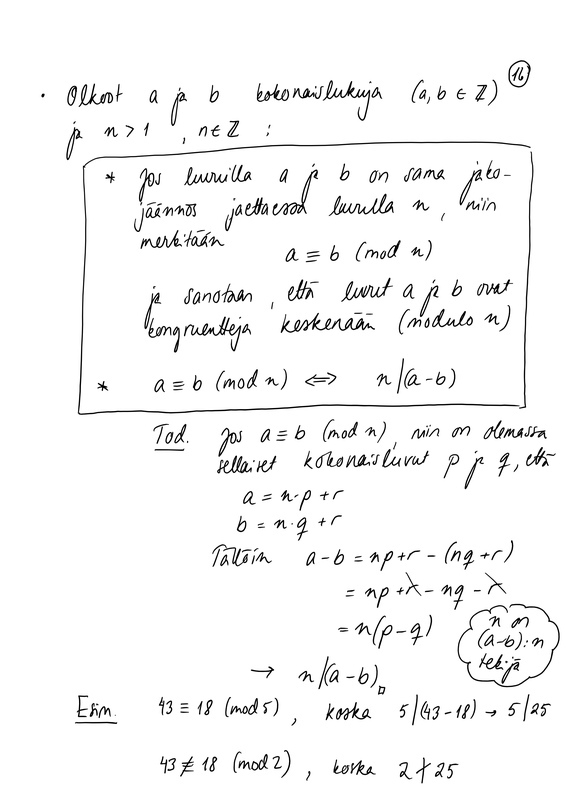 16
• Olkoot a ja b kokonaislukuja (a, b ∈ ℤ)
ja n > 1 , n ∈ ℤ :
* Jos luvuilla a ja b on sama jako-
jäännös jaettaessa luvulla n, niin
merkitään
a ≡ b (mod n)
ja sanotaan, että luvut a ja b ovat
kongruentteja keskenään (modulo n)
* a ≡ b (mod n) ⇔ n|(a-b)
Tod. Jos a ≡ b (mod n), niin on olemassa
sellaiset kokonaisluvut p ja q, että
a = n·p + r
b = n·q + r
Tällöin a-b = np + r - (nq + r)
= np + r - nq - r
= n(p - q)
n on
(a-b):n
tekijä
→ n|(a-b) □
Esim. 43 ≡ 18 (mod 5) , koska 5|(43-18) → 5|25
43 ≢ 18 (mod 2) , koska 2 ∤ 25